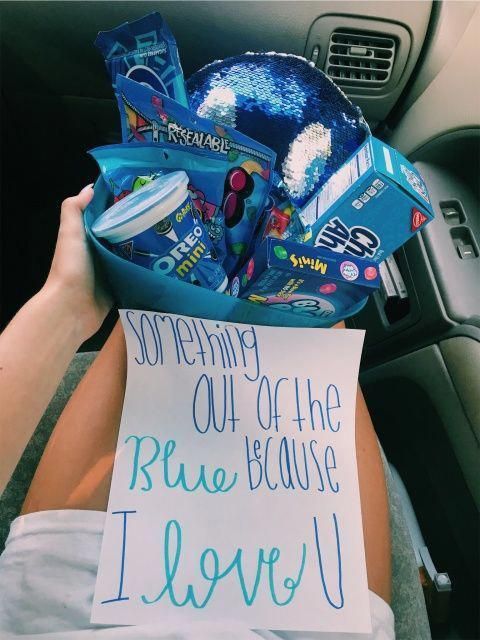 RESEALABLE
Go-Paks!
OREO
mini
Chips
Ahoy!
Minis
Something
out of the
Blue because
I love U